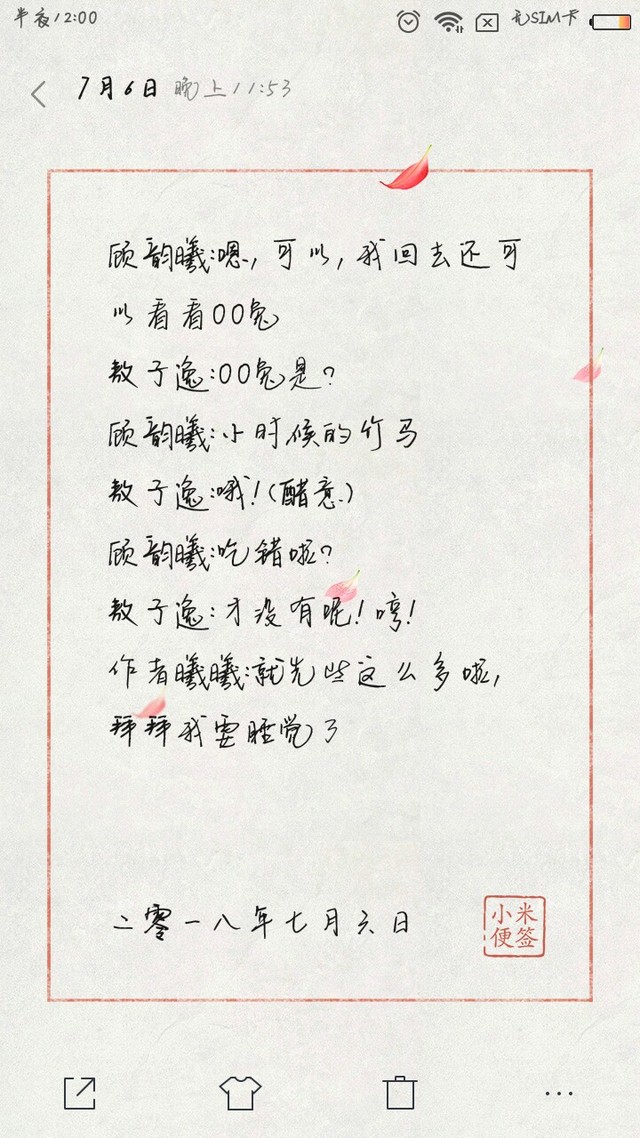 半夜12:00 无SIM卡
7月6日 晚上11:53
顾韵曦:嗯,可以,我回去还可
以看看OO兔
敖子逸:OO兔是?
顾韵曦:小时候的竹马
敖子逸:哦!(醋意)
顾韵曦:吃错啦?
敖子逸:才没有呢!哼!
作者曦曦:就先些这么多啦,
拜拜我要睡觉了
二零一八年七月六日
小米
便签